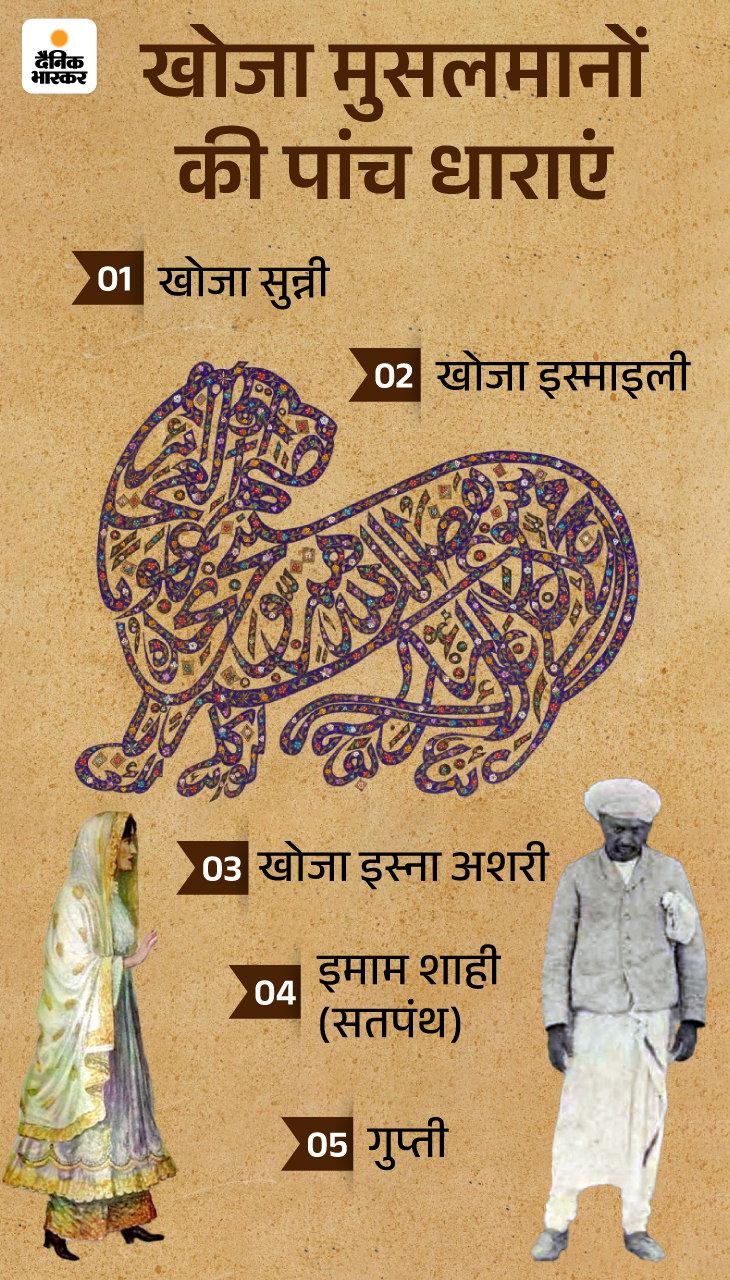 दैनिक
भास्कर
खोजा मुसलमानों
की पांच धाराएं
01 खोजा सुन्नी
02 खोजा इस्माइली
03 खोजा इस्ना अशरी
04 इमाम शाही
(सतपंथ)
05 गुप्ती